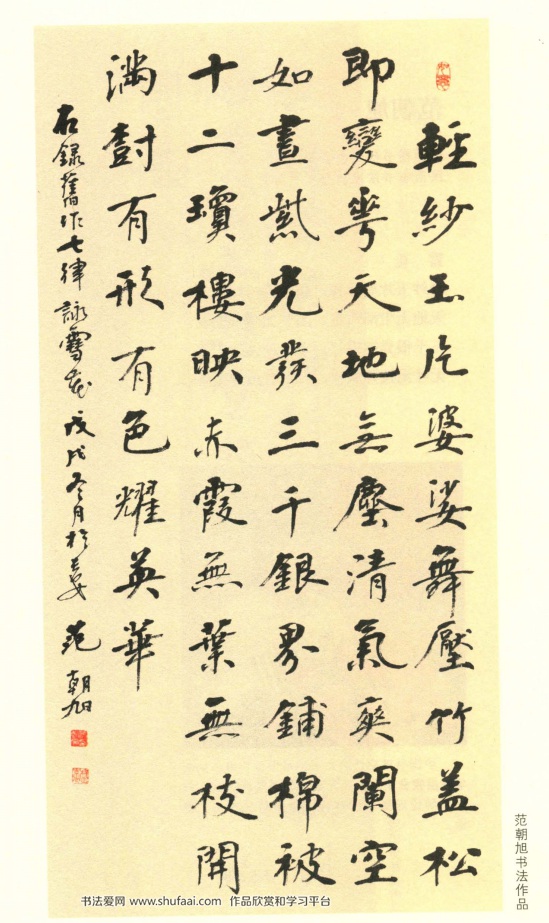 輕紗玉片婆娑舞壓竹盖松
即變天地無塵清氣爽闌空
如晝紫光發三千銀界鋪棉被
十二瓊樓映赤霞無葉無枝開
滿樹有形有色耀英華
右錄舊作七律詠雪花戊戌冬月於長安 范朝旭
范朝旭书法作品
书法爱网 www.shufaai.com 作品欣赏和学习平台